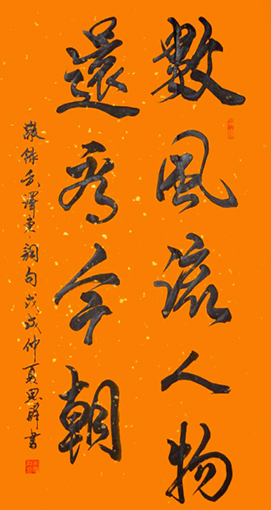 數風流人物
還看今朝
敬錄毛澤東詞句戊戌仲夏思祥書